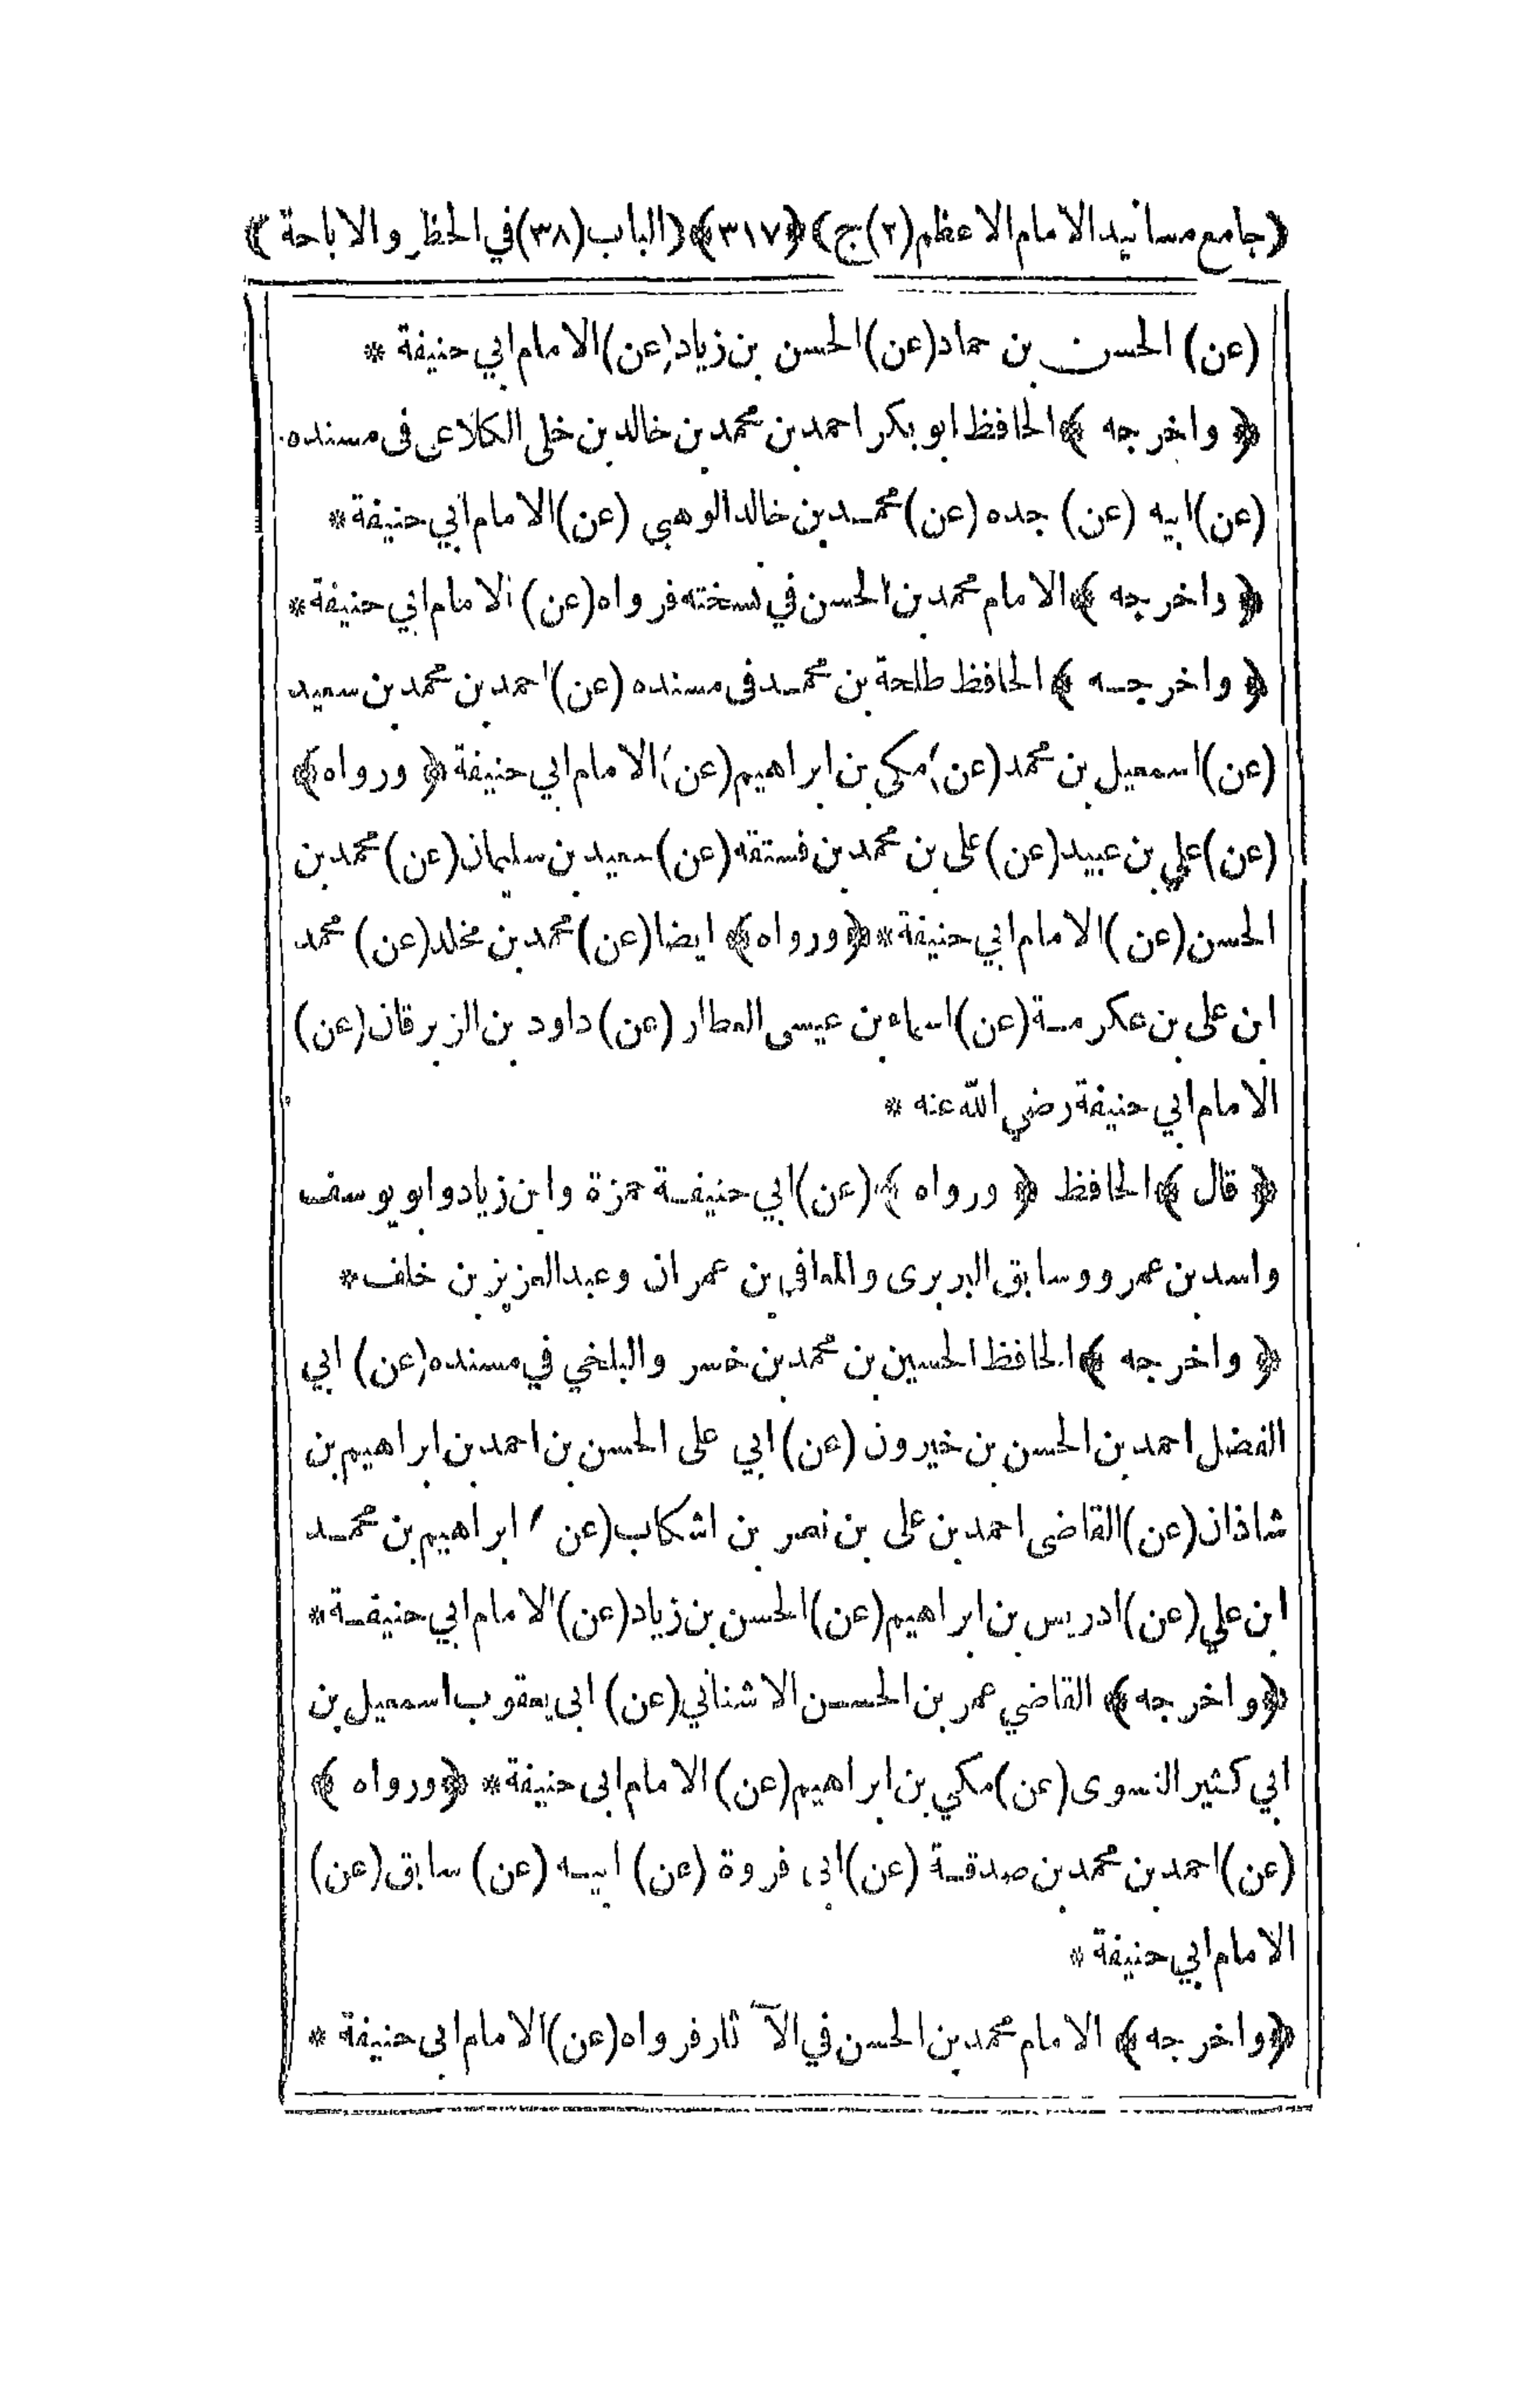 ﴿جامع مسانيد الامام الاعظم (٢) ج﴾ ﴿٣١٧﴾ ﴿الباب (٣٨) في الحظر والاباحة﴾
(عن) الحسن بن حماد (عن) الحسن بن زياد (عن) الامام ابي حنيفة *
﴿واخرجه﴾ الحافظ ابو بكر احمد بن محمد بن خالد بن خلى الكلاعى فى مسنده
(عن) ابيه (عن) جده (عن) محمد بن خالد الوهبي (عن) الامام ابي حنيفة *
﴿واخرجه﴾ الامام محمد بن الحسن في نسخته فرواه (عن) الامام ابي حنيفة *
﴿واخرجه﴾ الحافظ طلحة بن محمد فى مسنده (عن) احمد بن محمد بن سعيد
(عن) اسمعيل بن محمد (عن) مكى بن ابراهيم (عن) الامام ابي حنيفة ﴿ورواه﴾
(عن) علي بن عبيد (عن) على بن محمد بن فستقه (عن) سعيد بن سليمان (عن) محمد بن
الحسن (عن) الامام ابي حنيفة * ﴿ورواه﴾ ايضا (عن) محمد بن مخلد (عن) محمد
ابن على بن عكرمة (عن) اسماء بن عيسى العطار (عن) داود بن الزبرقان (عن)
الامام ابي حنيفة رضي الله عنه *
﴿قال﴾ الحافظ ﴿ورواه﴾ (عن) ابي حنيفة حمزة وابن زياد وابو يوسف
واسد بن عمرو وسابق البربرى والمعافى بن عمران وعبد العزيز بن خلف *
﴿واخرجه﴾ الحافظ الحسين بن محمد بن خسرو البلخي في مسنده (عن) ابي
الفضل احمد بن الحسن بن خيرون (عن) ابي على الحسن بن احمد بن ابراهيم بن
شاذان (عن) القاضى احمد بن على بن نصر بن اشكاب (عن) ابراهيم بن محمد
ابن علي (عن) ادريس بن ابراهيم (عن) الحسن بن زياد (عن) الامام ابي حنيفة *
﴿واخرجه﴾ القاضي عمر بن الحسن الاشناني (عن) ابى يعقوب اسمعيل بن
ابي كثير النسوى (عن) مكي بن ابراهيم (عن) الامام ابى حنيفة * ﴿ورواه﴾
(عن) احمد بن محمد بن صدقة (عن) ابى فروة (عن) ابيه (عن) سابق (عن)
الامام ابي حنيفة *
﴿واخرجه﴾ الامام محمد بن الحسن في الآثار فرواه (عن) الامام ابى حنيفة *